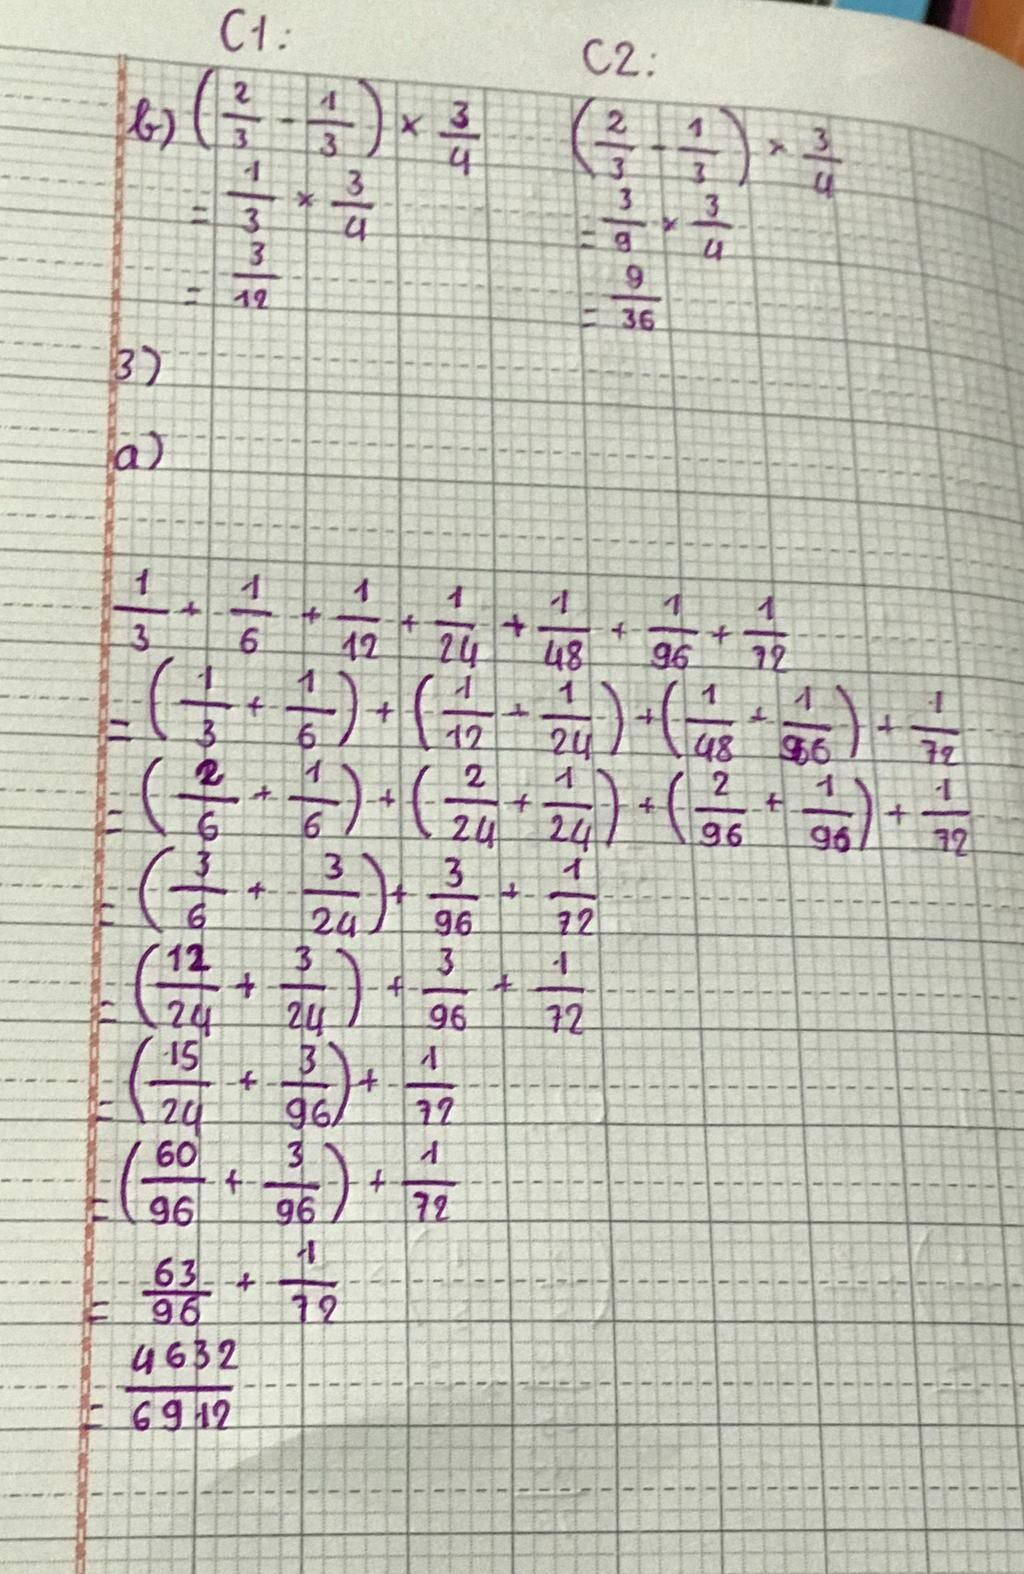 C1: C2:
b) (2/3 - 1/3) × 3/4 (2/3 - 1/3) × 3/4
= 1/3 × 3/4 = 3/9 × 3/4
= 3/12 = 9/36
3)
a)
1/3 + 1/6 + 1/12 + 1/24 + 1/48 + 1/96 + 1/72
= (1/3 + 1/6) + (1/12 + 1/24) + (1/48 + 1/96) + 1/72
= (2/6 + 1/6) + (2/24 + 1/24) + (2/96 + 1/96) + 1/72
= (3/6 + 3/24) + 3/96 + 1/72
= (12/24 + 3/24) + 3/96 + 1/72
= (15/24 + 3/96) + 1/72
= (60/96 + 3/96) + 1/72
= 63/96 + 1/72
= 4632/6912